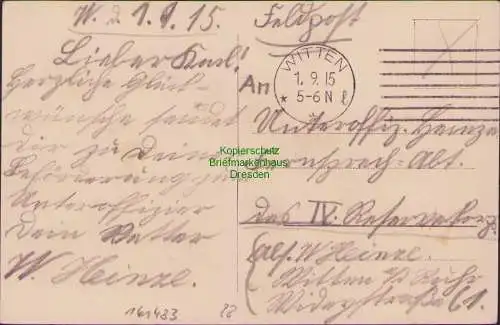 W. d. 1.9.15.
Lieber Karl!
Herzliche Glück-
wünsche sendet
Dir zu Deiner
Beförderung zum
Unteroffizier
Dein Vetter
W. Heinze.
161483
Feldpost
WITTEN
1.9.15
* 5-6 N
An
Unteroffiz. Heinze
Fernsprech-Abt.
des IV. Reservekorps.
Abs. W. Heinze.
Witten a/d Ruhr
Wideystraße 61.
Kopierschutz
Briefmarkenhaus
Dresden